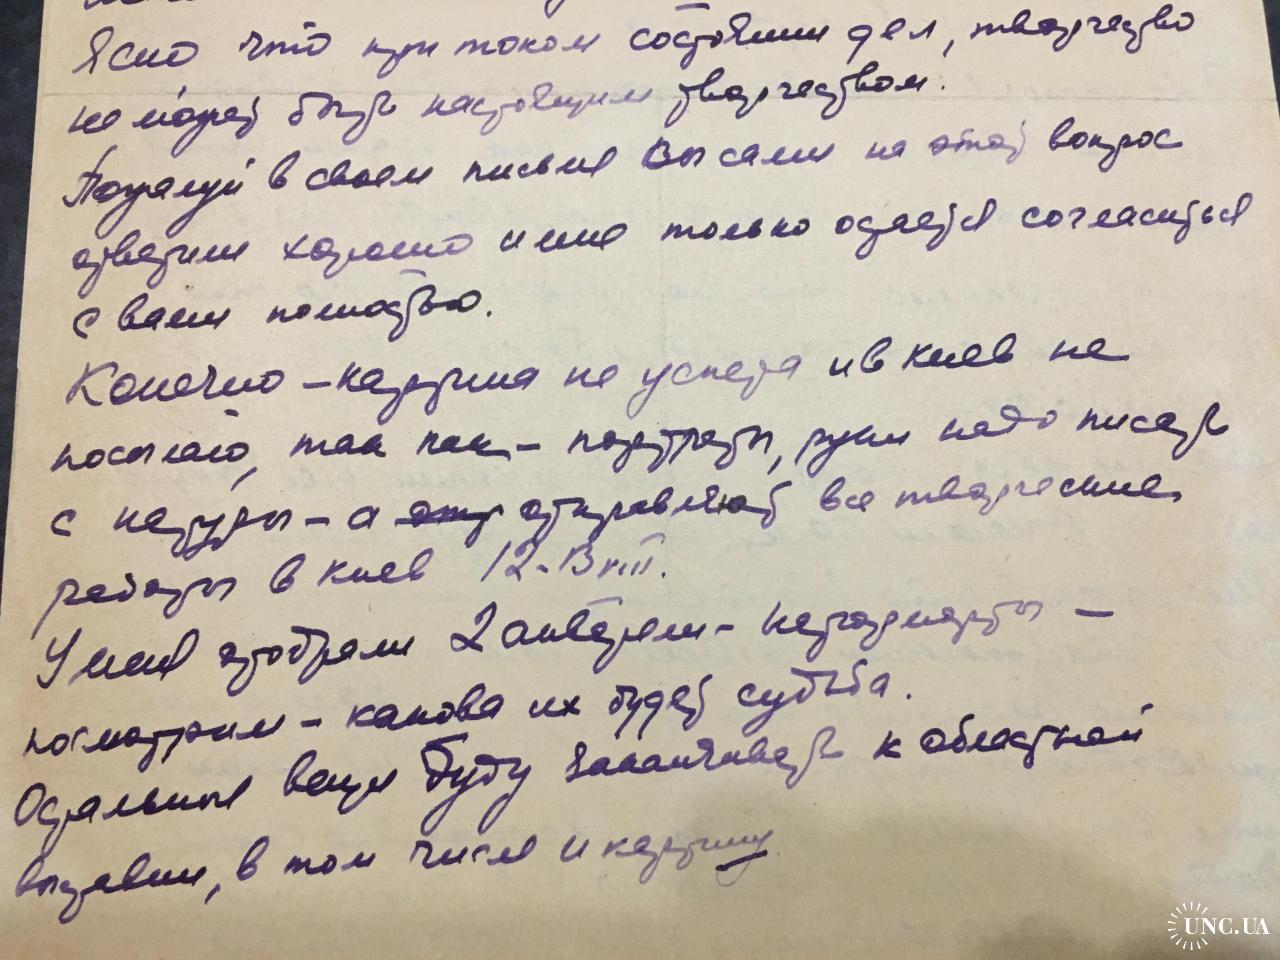 Ясно что при таком состоянии дел, творчество
не может быть настоящим творчеством.
Пожалуй в своем письме Вы сами на этот вопрос
ответили хорошо и мне только остается согласиться
с вами полностью.
Конечно – картина не успета и в Киев не
посылаю, так как – портреты, руки надо писать
с натуры – а отправляют все творческие
работы в Киев 12-VIII.
У меня отобрали 2 акварели – натюрморты –
посмотрим – какова их будет судьба.
Остальные вещи буду заканчивать к областной
выставки, в том числе и картину
UNC.UA